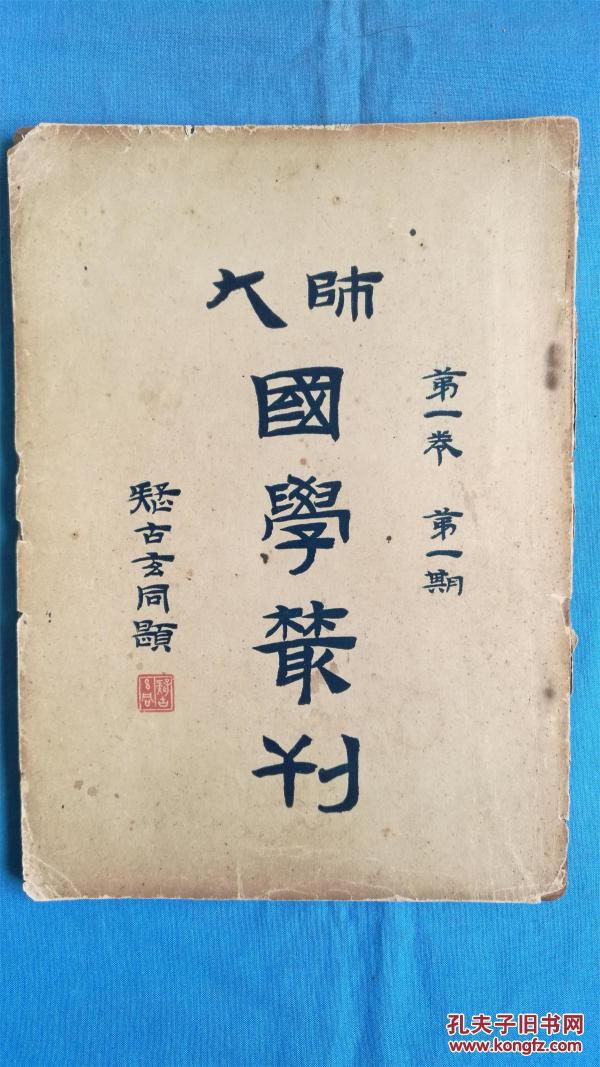 師大
國學叢刊
第一卷 第一期
疑古玄同題
疑古玄同
孔夫子旧书网
www.kongfz.com